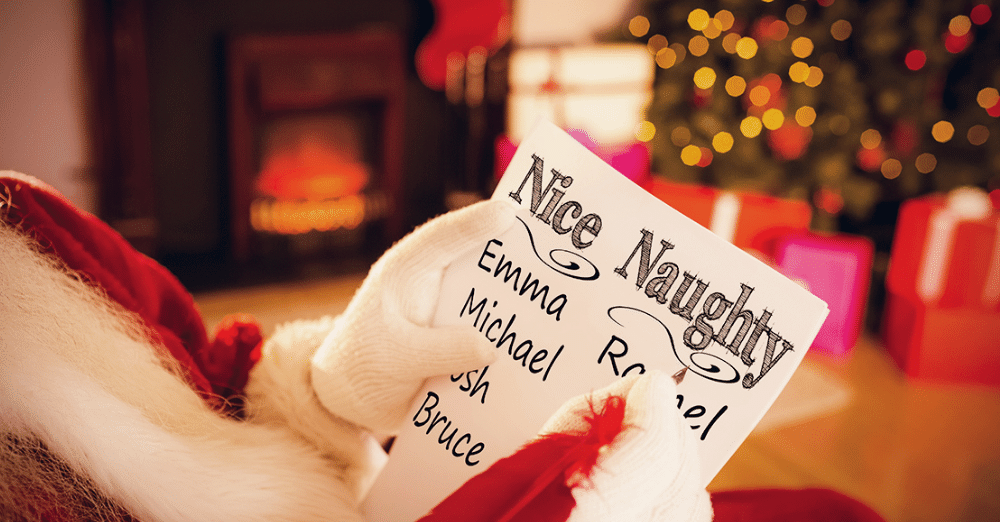 Nice
Emma
Michael
Bruce
Naughty